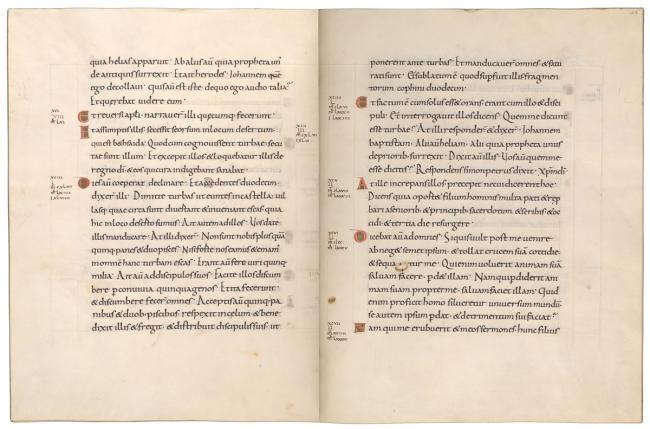 quia helias apparuit· Ab aliis aū quia propheta un'
de antiquis surrexit· Et ait herodes· Johannem quē
ego decollaui· quis aū est iste de quo ego audio talia?
Et querebat uidere eum·
Et reuersi apli· narrauer̄ illi quecumq; fecerunt·
Et assumptis illis secessit seorsum in locum desertum·
qui est bethsaida· Quod cum cognouissent turbae· secu
tae sunt illum· Et excepit illos & loquebatur illis de
regno di· & eos qui cura indigebant sanabat·
Dies aū coeperat declinare· Et accedentes duodecim·
dixer̄ illi· Dimitte turbas ut euntes in castella· uil
lasq; quae circa sunt diuertant· & inueniant escas· quia
hic in loco deserto sumus· At ait ad illos· Vos date
illis manducare· At illi dixer̄· Non sunt nobis plus quā
quinq; panes & duo pisces· Nisi forte nos eamus & emam'
in omnē hanc turbam escas· Erant aū fere uiri quinq;
milia· Ait aū ad discipulos suos· Facite illos discum
bere p conuiuia quinquagenos· Et ita fecerunt·
& discumbere fecer̄ omnes· Acceptis aū quinq; pa
nibus & duob; piscibus· respexit in celum· & bene
dixit illis & fregit· & distribuit discipulis suis· ut
ponerent ante turbas· Et manducauer̄ omnes· & satu
rati sunt· Et sublatum ē quod supfuit illis fragmen
torum cophini duodecim·
Et factum ē cum solus ess& orans· erant cum illo & disci
puli· Et interrogauit illos dicens· Quem me dicunt
esse turbae? At illi responder̄ & dixer̄· Johannem
baptistam· Alii aū heliam· Alii quia propheta unus
de priorib; surrexit· Dixit aū illis· Vos aū quem me
esse dicitis? Respondens simon petrus dixit· Xpm di·
At ille increpans illos precepit ne cui dicerent hoc·
Dicens quia oport& filium hominis multa pati· & rep
bari a senioribʼ & principib; sacerdotum & scribis· & oc
cidi· & tertia die resurgere·
Dicebat aū ad omnes· Si quis uult post me uenire·
abneg& semet ipsum· & tollat crucem suā cotidie·
& sequatur me· Qui enim uoluerit animam suā
saluam facere· pd& illam· Nam qui pdiderit ani
mam suam propter me· saluam faciet illam· Quid
enim proficit homo si lucretur uniuersum mundū·
se autem ipsum pdat· & detrimentum sui faciat?
Nam qui me erubuerit & meos sermones· hunc filius